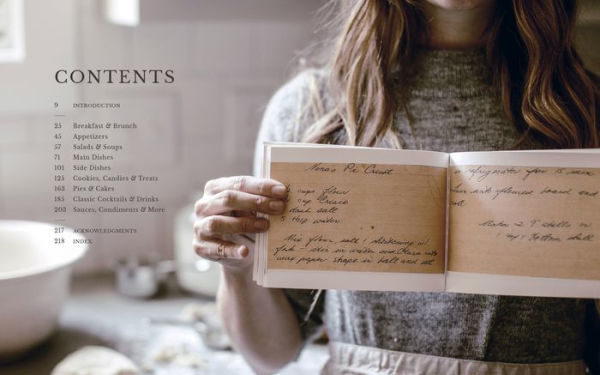 CONTENTS
9 INTRODUCTION
25 Breakfast & Brunch
45 Appetizers
57 Salads & Soups
71 Main Dishes
101 Side Dishes
125 Cookies, Candies & Treats
163 Pies & Cakes
185 Classic Cocktails & Drinks
203 Sauces, Condiments & More
217 ACKNOWLEDGMENTS
218 INDEX
Pie Crust
cups flour
cup
dash salt
5 tbsp water
Mix flour, salt
fork - stir in water and
wax paper shape in ball and
refrigerator for 15 min.
board and
Makes 2 9" shells or
1 9" bottom shell